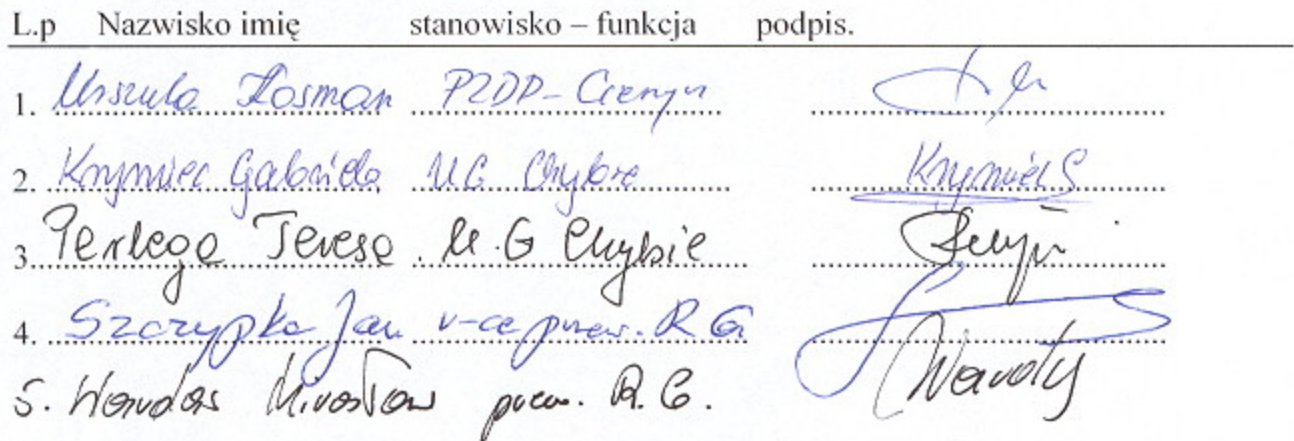 L.p Nazwisko imię stanowisko – funkcja podpis.
1. Urszula Kosman PZDP - Cieszyn
2. Krzymiec Gabriela UG Chybie Krzymiec G
3. Perlega Teresa U.G Chybie
4. Szczypka Jan v-ce przew. R.G.
5. Wandas Mirosław przew. R.G.